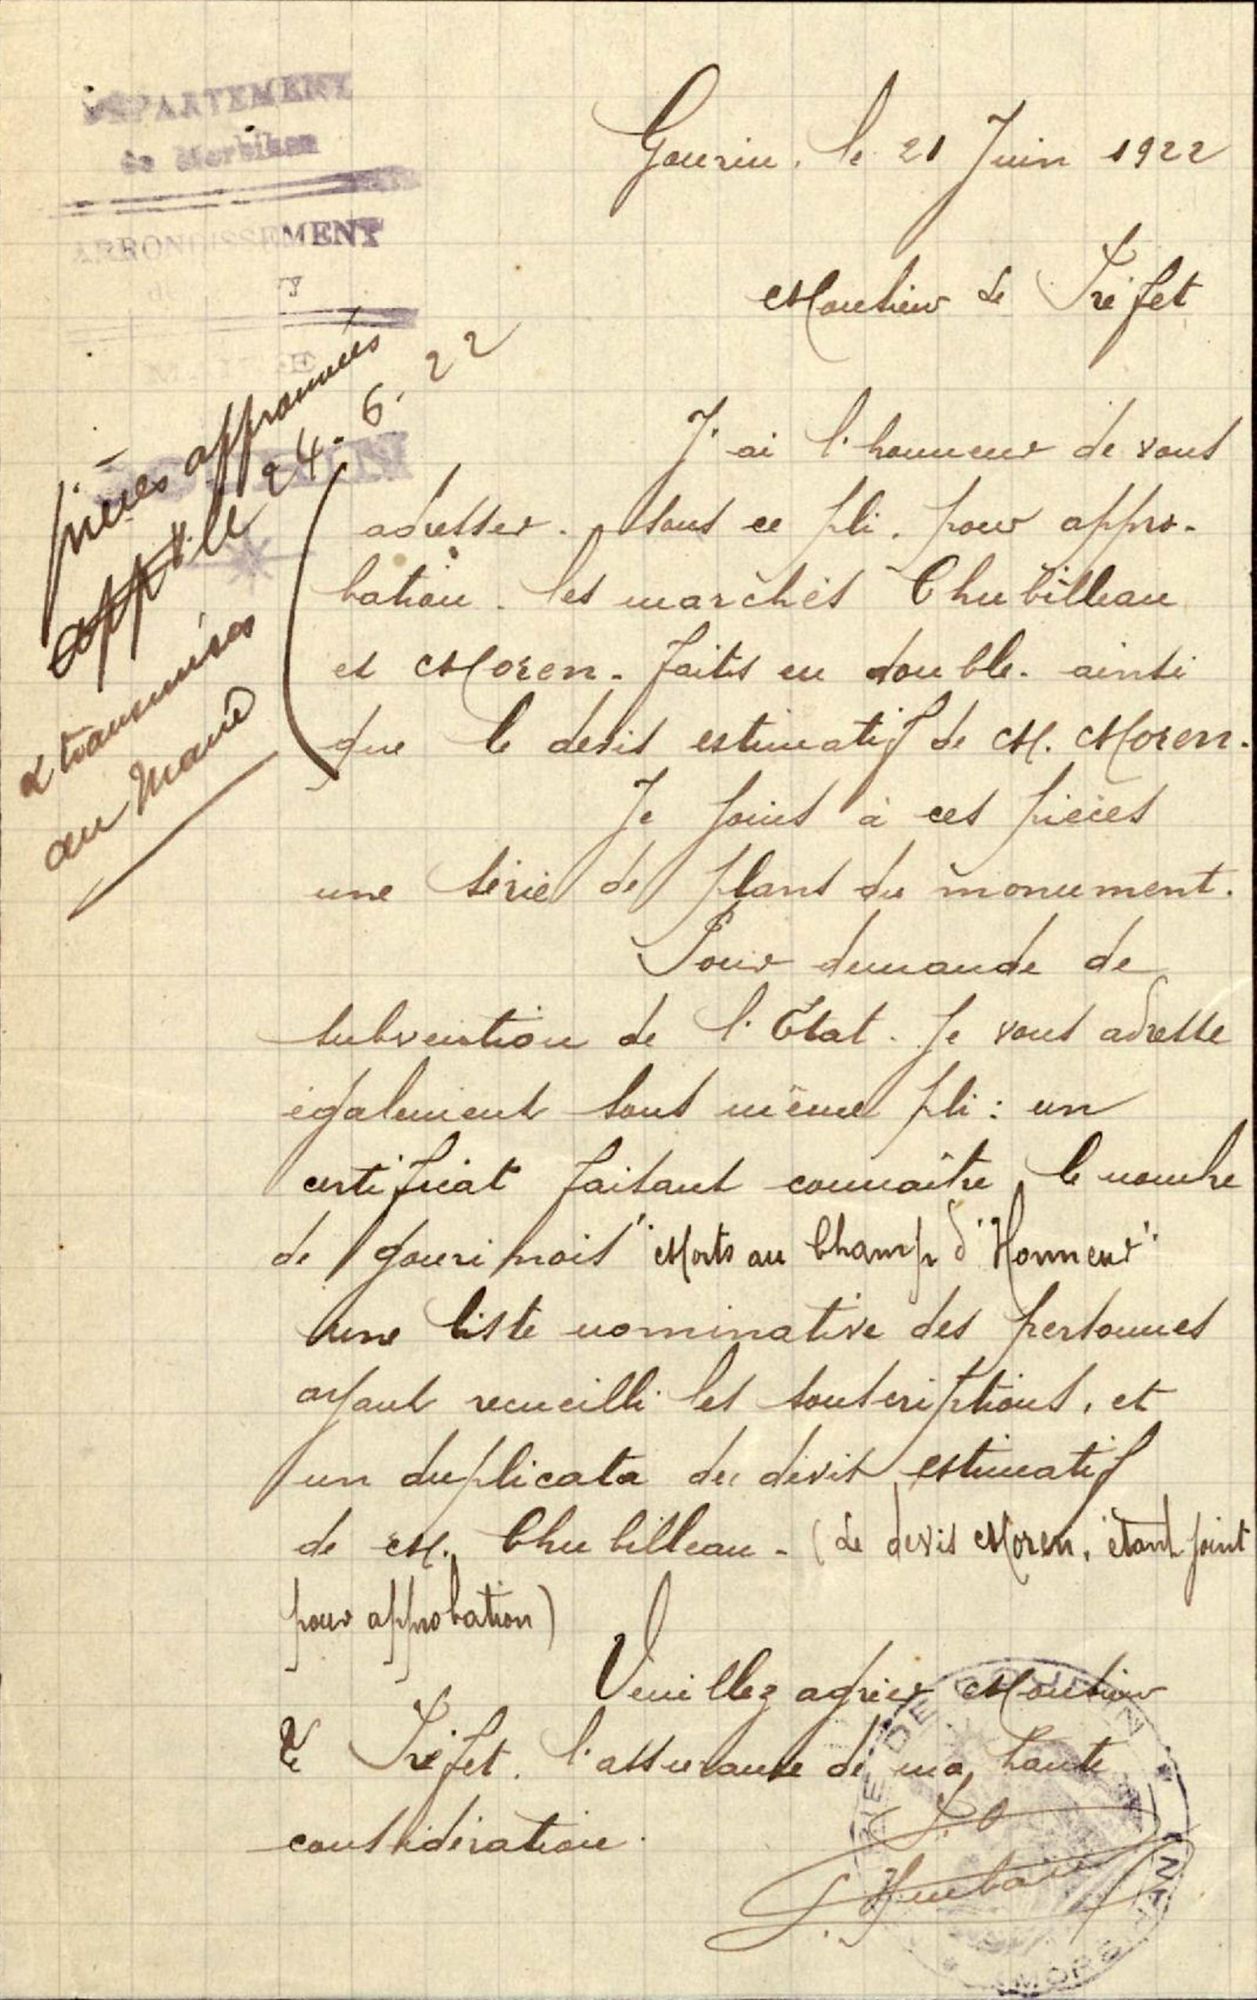 DÉPARTEMENT
du Morbihan
ARRONDISSEMENT
de
MAIRIE
GOURIN
Gourin, le 21 Juin 1922
Monsieur Le Préfet
pièces approuvées
24.6.22
& transmises
au Maire
J'ai l'honneur de vous
adresser. sous ce pli. pour appro-
bation. les marchés Chubilleau
et Moren. faits en double. ainsi
que le devis estimatif de M. Moren.
Je joins à ces pièces
une série de plans du monument.
Pour demande de
subvention de l'État. Je vous adresse
également sous même pli : un
certificat faisant connaître le nombre
de gourinois "Morts au Champ d'Honneur"
une liste nominative des personnes
ayant recueilli les souscriptions, et
un duplicata du devis estimatif
de M. Chubilleau - (Le devis Moren, étant joint
pour approbation)
Veuillez agréer Monsieur
le Préfet. l'assurance de ma haute
considération.
MAIRIE DE GOURIN
MORBIHAN